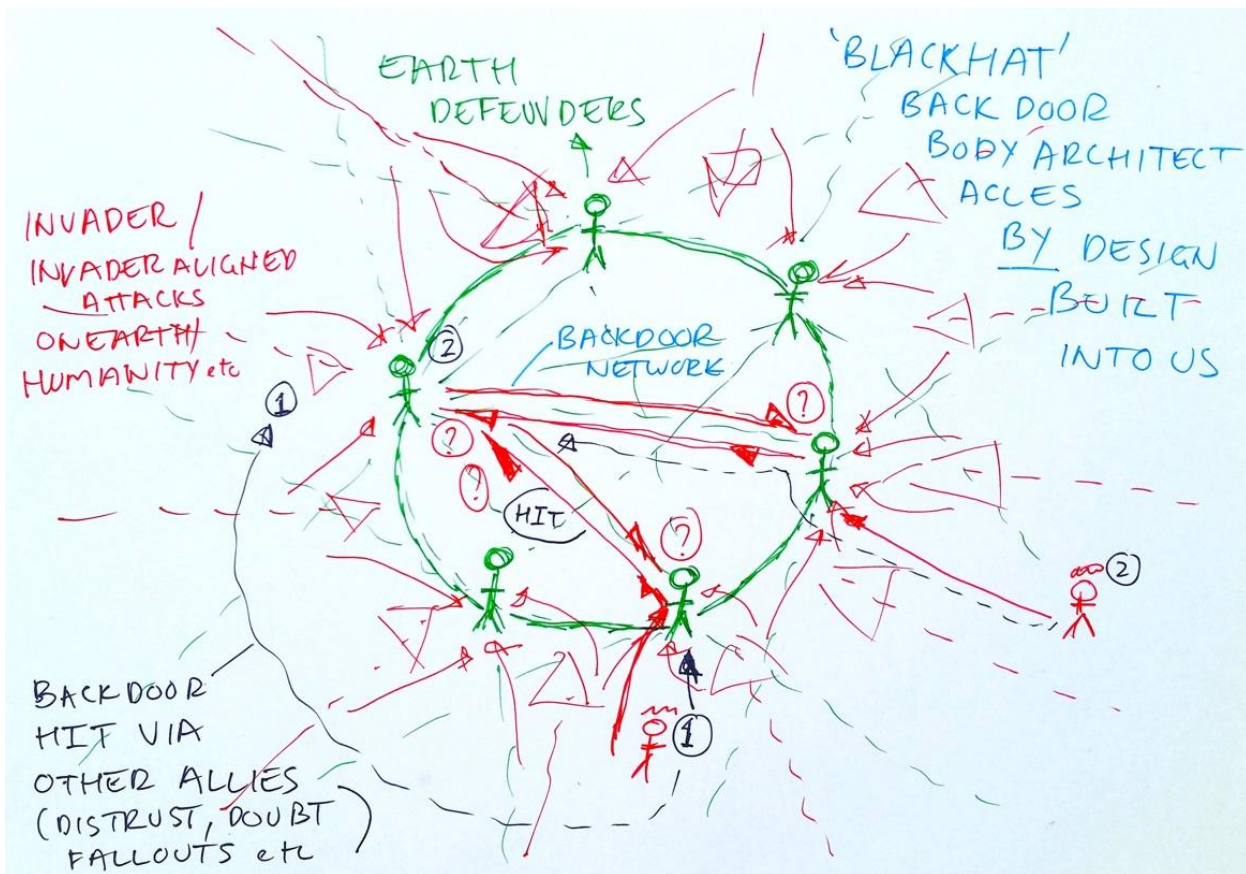 EARTH
DEFENDERS
'BLACKHAT'
BACK DOOR
BODY ARCHITECT
ACCES
BY DESIGN
BUILT
INTO US
INVADER /
INVADER ALIGNED
ATTACKS
ON EARTH/
HUMANITY etc
2
BACKDOOR
NETWORK
?
1
?
?
HIT
?
2
1
BACKDOOR
HIT VIA
OTHER ALLIES
(DISTRUST, DOUBT
FALLOUTS etc)